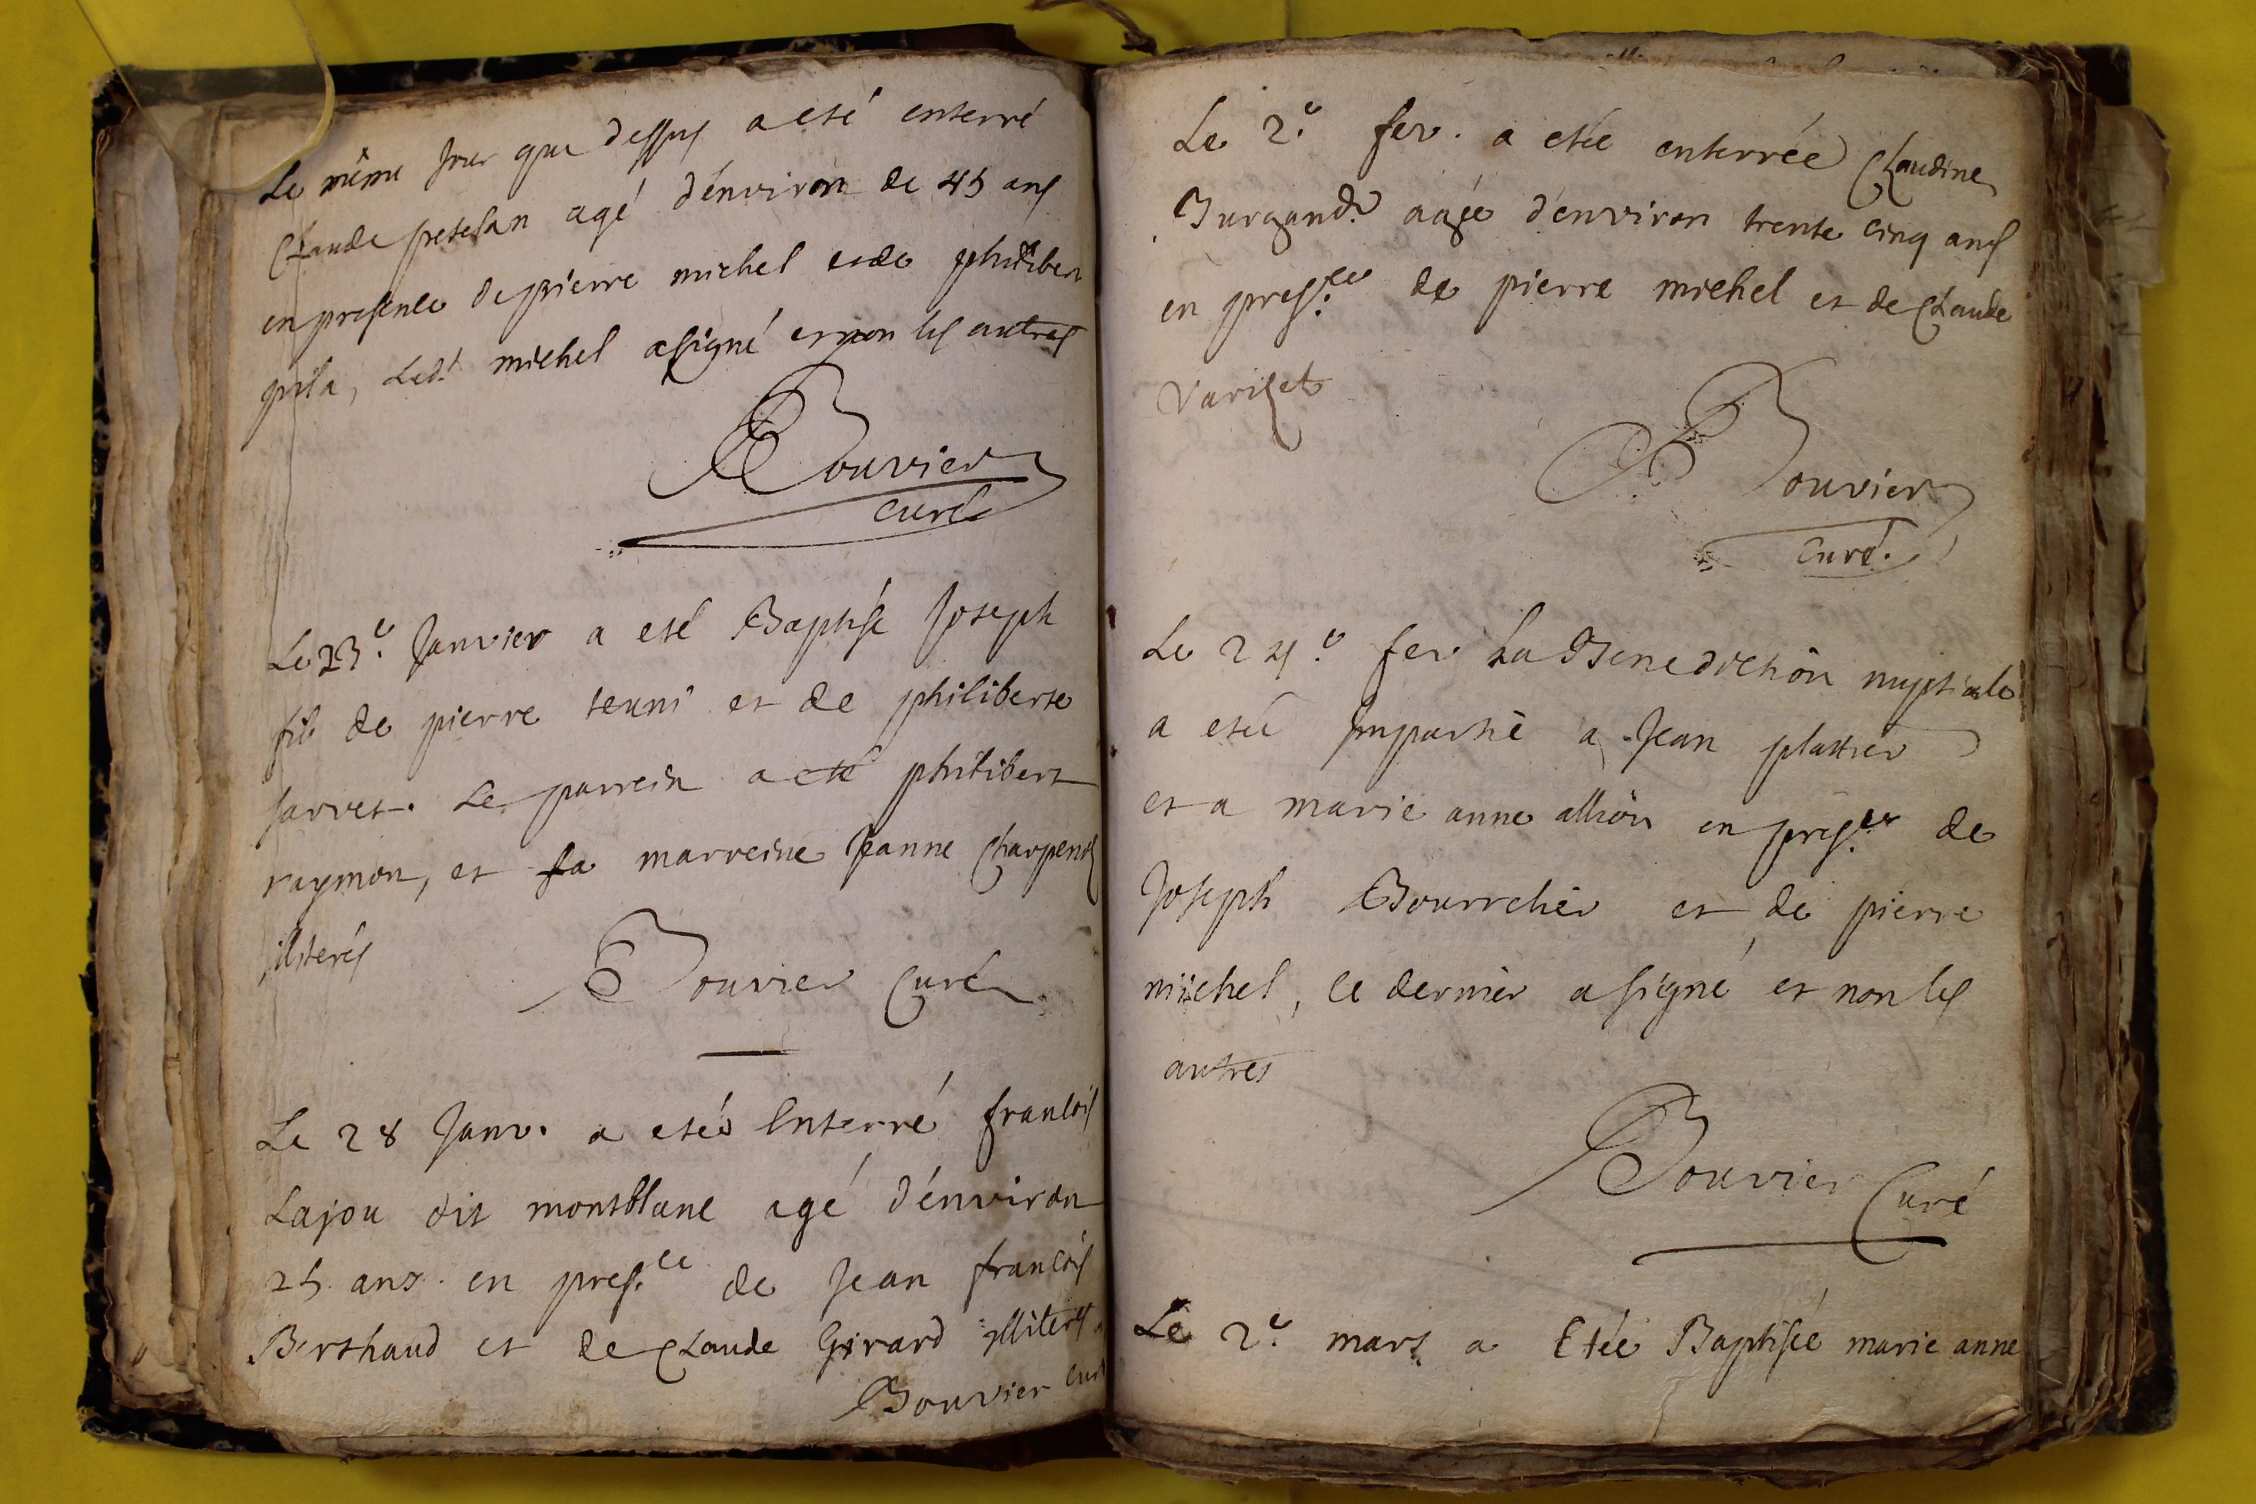 Le même jour que dessus a eté enterré
Claude pretesan agé d'énviron de 45 ans
en presence de pierre michel et de philibert
pila, Ledt michel a signé et non les autres
Bouvier
curé
Le 23e Janvier a eté Baptisé Joseph
fils de pierre teuni et de philiberte
jarret. Le parrein a eté philibert
raymon, et la marreine Jeanne Charpend
illiterés
Bouvier Curé
Le 28 Janv. a eté Enterré francois
Lajou dit montblanc agé d'énviron
25 ans. en presce de Jean francois
Berthaud et de Claude Girard illiterés
Bouvier curé
Le 2e fev. a etée enterrée Claudine
Burgande aagée d'environ trente cinq ans
en presce de pierre michel et de Claude
Variset
Bouvier
curé.
Le 24e fev La Benediction nuptiale
a eté Impartie a Jean plattier
et a marie anne allion en presce de
Joseph Bourrelier et de pierre
michel, ce dernier a signé et non les
autres
Bouvier Curé
Le 2e mars a Etée Baptisée marie anne